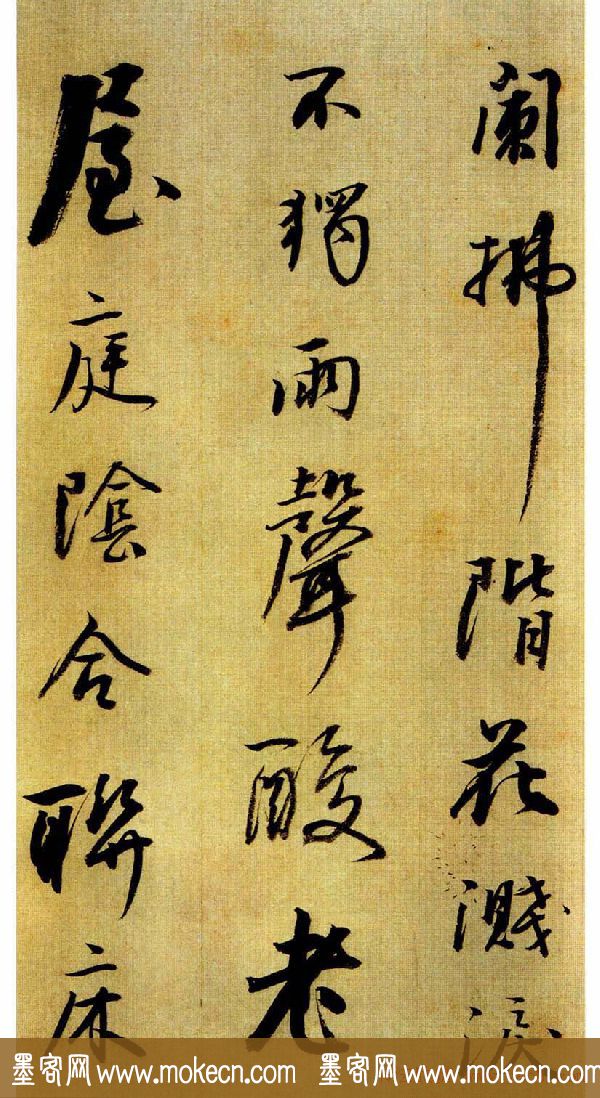 阑拂階花濺淚
不獨雨聲酸老
屋庭陰合聯床
墨客网 www.mokecn.com 墨客网 www.mokecn.com